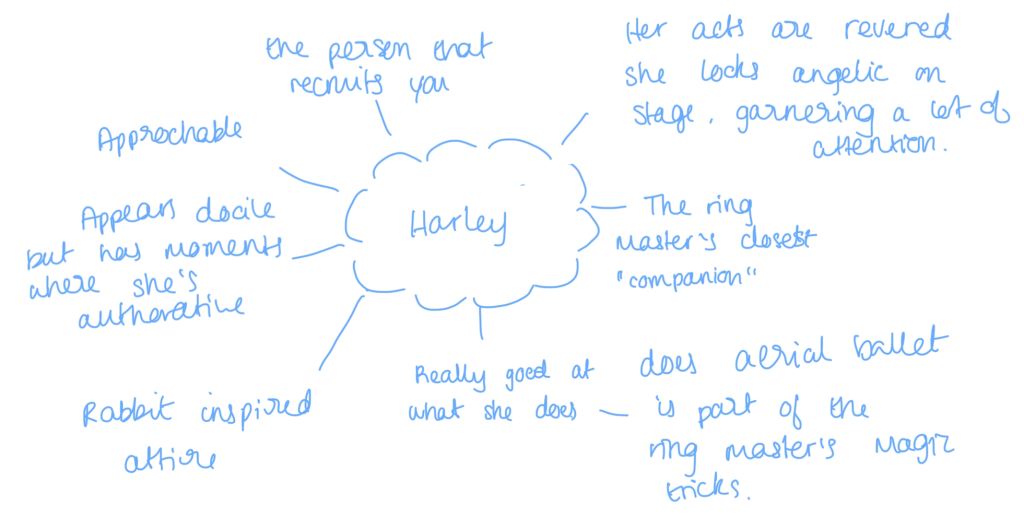 the person that
recruits you
Her acts are revered
she looks angelic on
stage, garnering a lot of
attention.
Approchable
Appears docile
but has moments
where she's
autherative
Harley
The ring
master's closest
"companion"
Rabbit inspired
attire
Really good at
what she does
does aerial ballet
is part of the
ring master's magic
tricks.